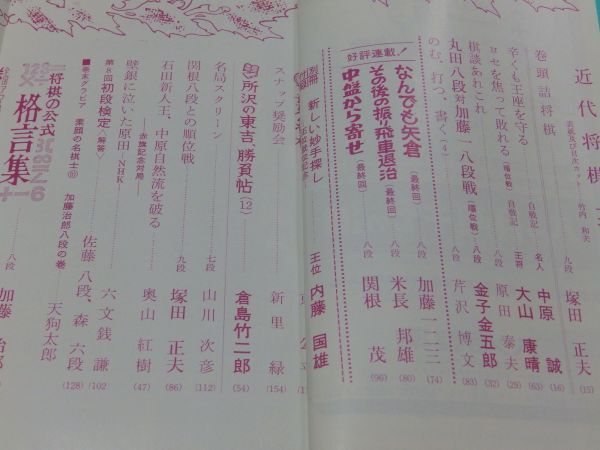 近代将棋
表紙及び目次カット 竹内和夫
巻頭詰将棋 九段 塚田正夫 (15)
名人 中原誠 (16)
辛くも王座を守る 自戦記 王将 大山康晴 (63)
ヨセを焦って敗れる (順位戦) 自戦記 八段 原田泰夫 (29)
棋談あれこれ 金子金五郎 (32)
丸田八段対加藤一八段戦 (順位戦) 八段
のむ、打つ、書く (4) 八段 芹沢博文 (83)
好評連載!
なんでも矢倉 (最終回) 八段 加藤一二三 (74)
その後の振り飛車退治 (最終回) 八段 米長邦雄 (80)
中盤から寄せ (最終回) 八段 関根茂 (96)
別冊付録 新しい妙手探し 王位 内藤国雄
スナップ奨励会 新里緑 (154)
所沢の東吉、勝負帖 (12) 倉島竹二郎 (54)
名局スクリーン
関根八段との順位戦 七段 山川次彦 (112)
石田新人王、中原自然流を破る 九段 塚田正夫 (86)
赤旗記念対局
壁銀に泣いた原田 NHK 奥山紅樹 (47)
第8回 初段検定 <解答> 六文銭謙 (102)
佐藤八段、森六段
巻末グラビア 素顔の名棋士 加藤治郎八段の巻 天狗太郎 (128)
将棋の公式
格言集 八段 加藤治郎